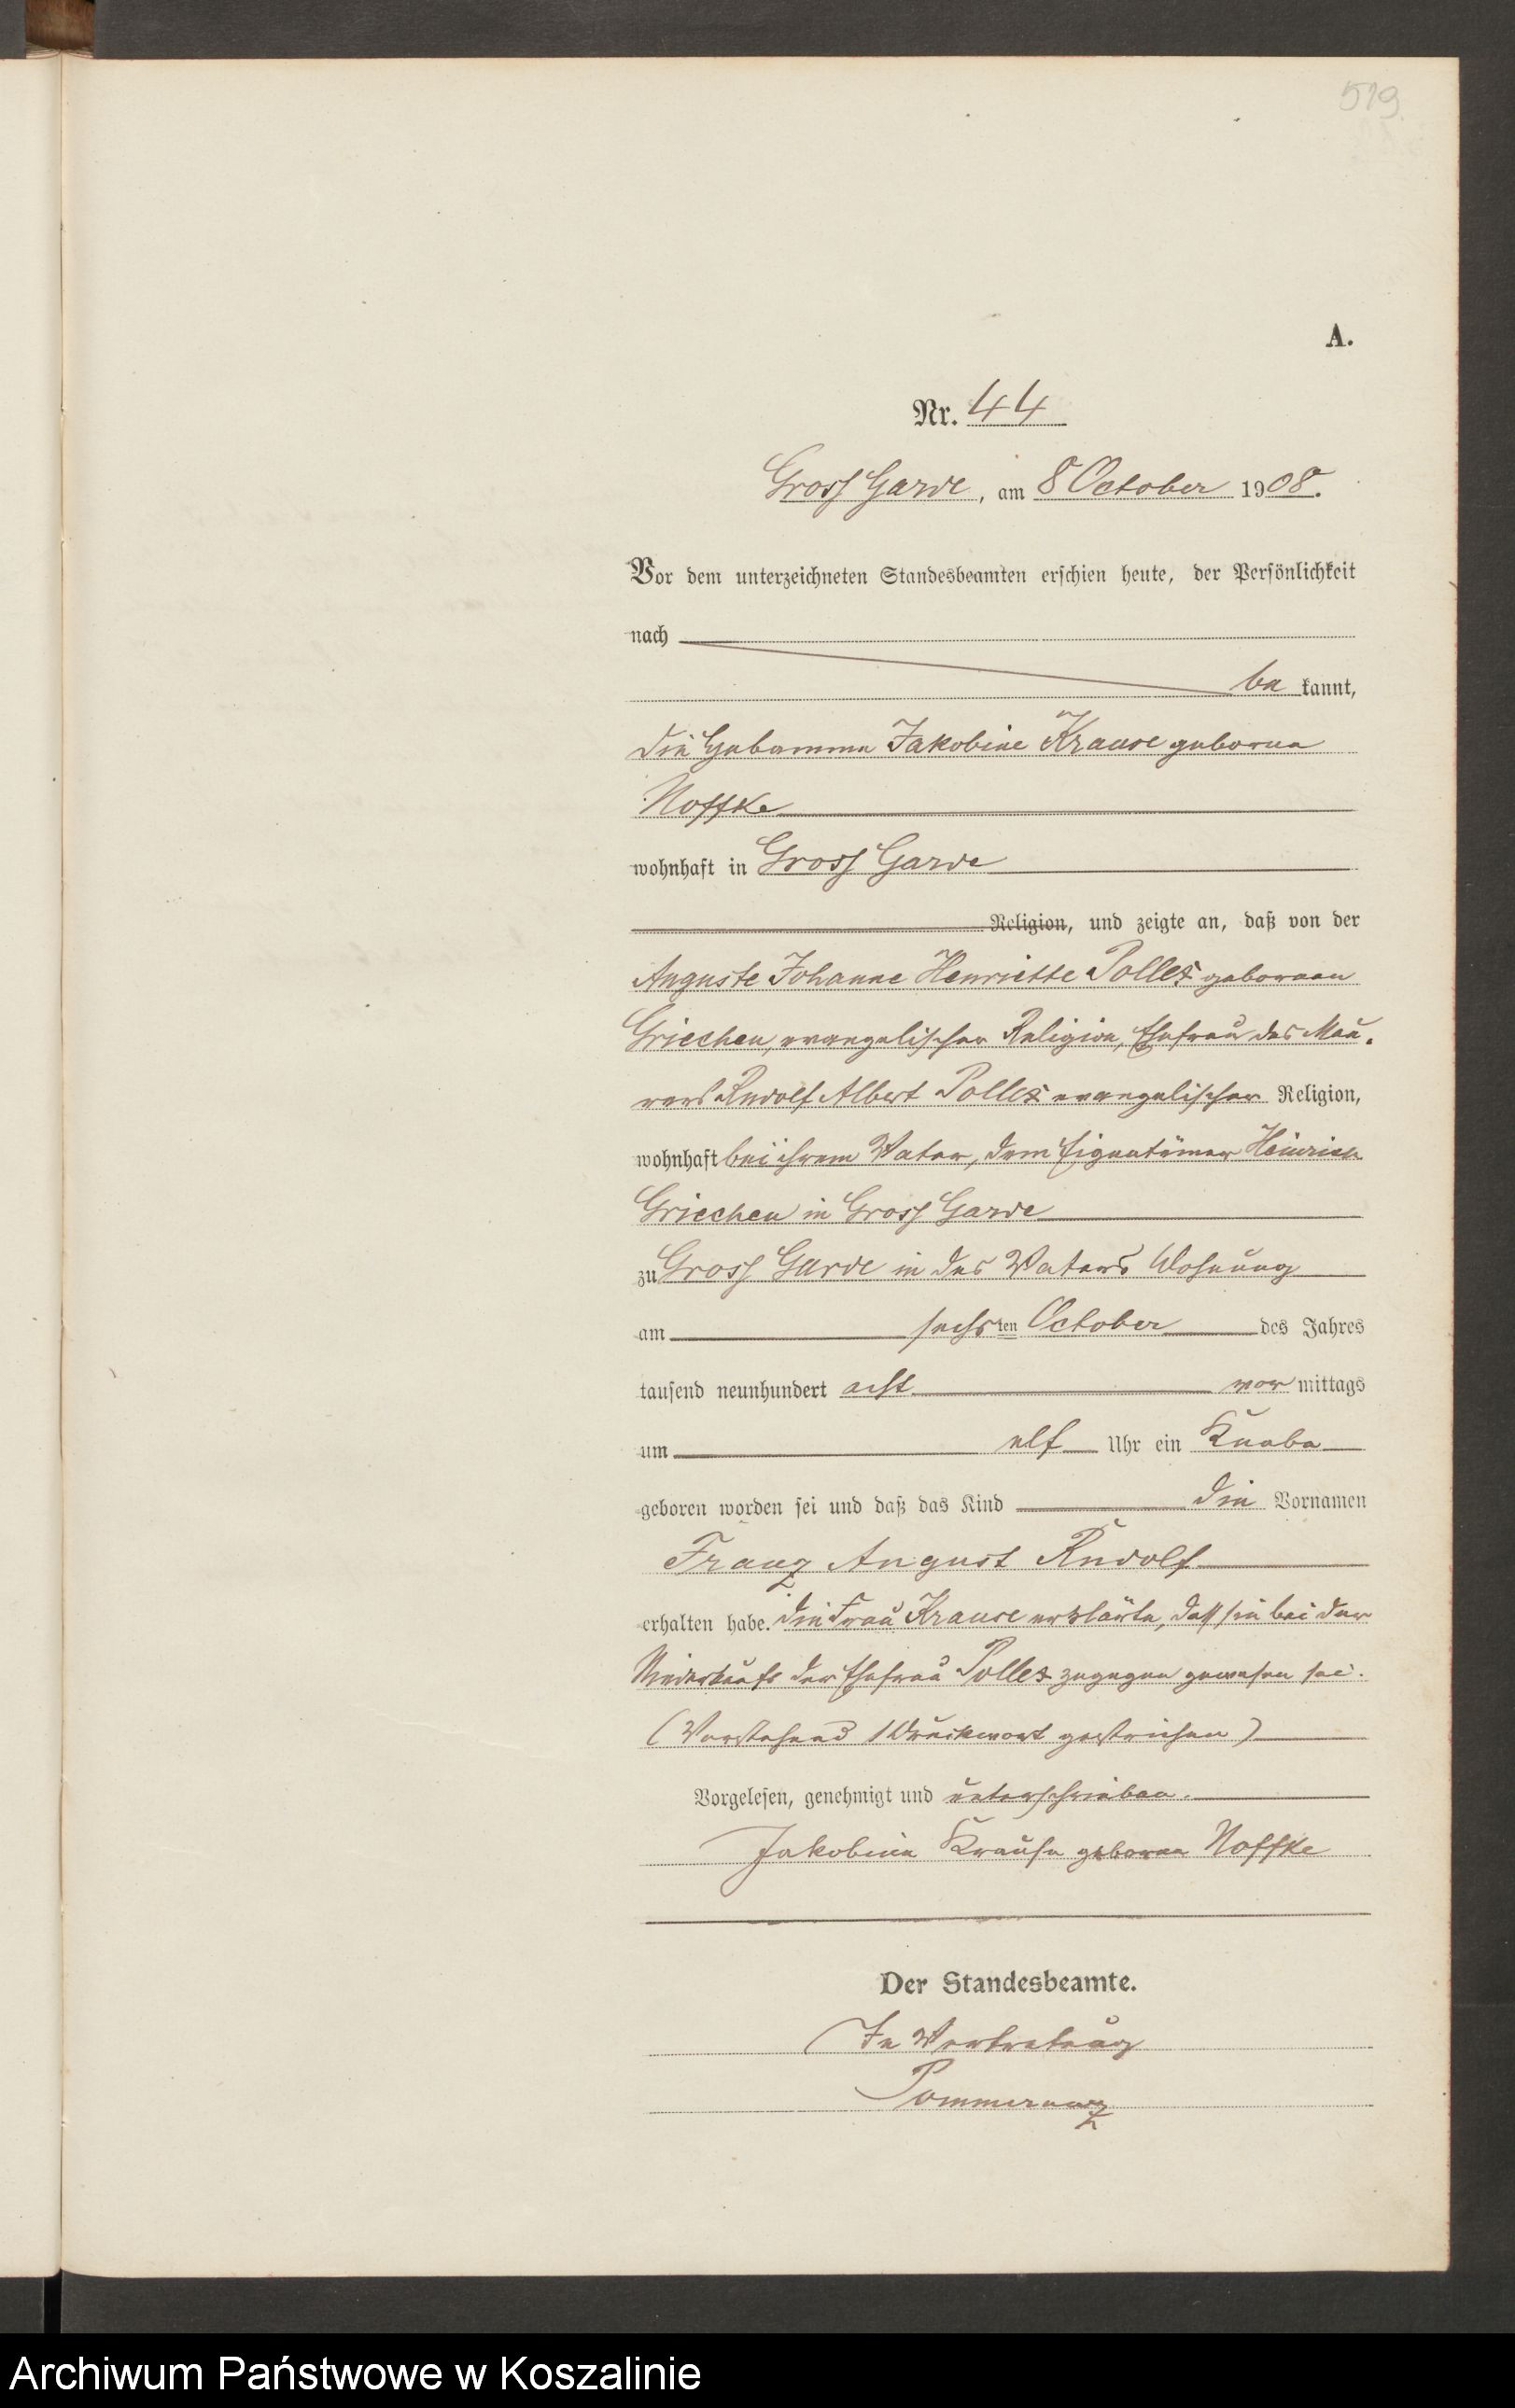 519.
A.
Nr. 44
Gross Garde, am 8 October 1908.
Vor dem unterzeichneten Standesbeamten erschien heute, der Persönlichkeit
nach
be kannt,
die Hebamme Jakobine Krause geborne
Noffke
wohnhaft in Gross Garde
Religion, und zeigte an, daß von der
Auguste Johanne Henriette Pollex geboraen
Griechen, evangelischer Religion, Ehefrau des Mau-
rers Rudolf Albert Pollex evangelischer Religion,
wohnhaft bei ihrem Vater, dem Eigentümer Heinrich
Griechen in Gross Garde
zu Gross Garde in des Vaters Wohnung
am sechsten October des Jahres
tausend neunhundert acht vor mittags
um elf Uhr ein Knabe
geboren worden sei und daß das Kind die Vornamen
Franz August Rudolf
erhalten habe. Die Frau Krause erklärte, daß sie bei der
Niederkunft der Ehefrau Pollex zugegen gewesen sei.
(Vorstehend 1 Druckwort gestrichen)
Vorgelesen, genehmigt und unterschrieben.
Jakobine Krause geboren Noffke
Der Standesbeamte.
In Vertretung
Pommerening
Archiwum Państwowe w Koszalinie